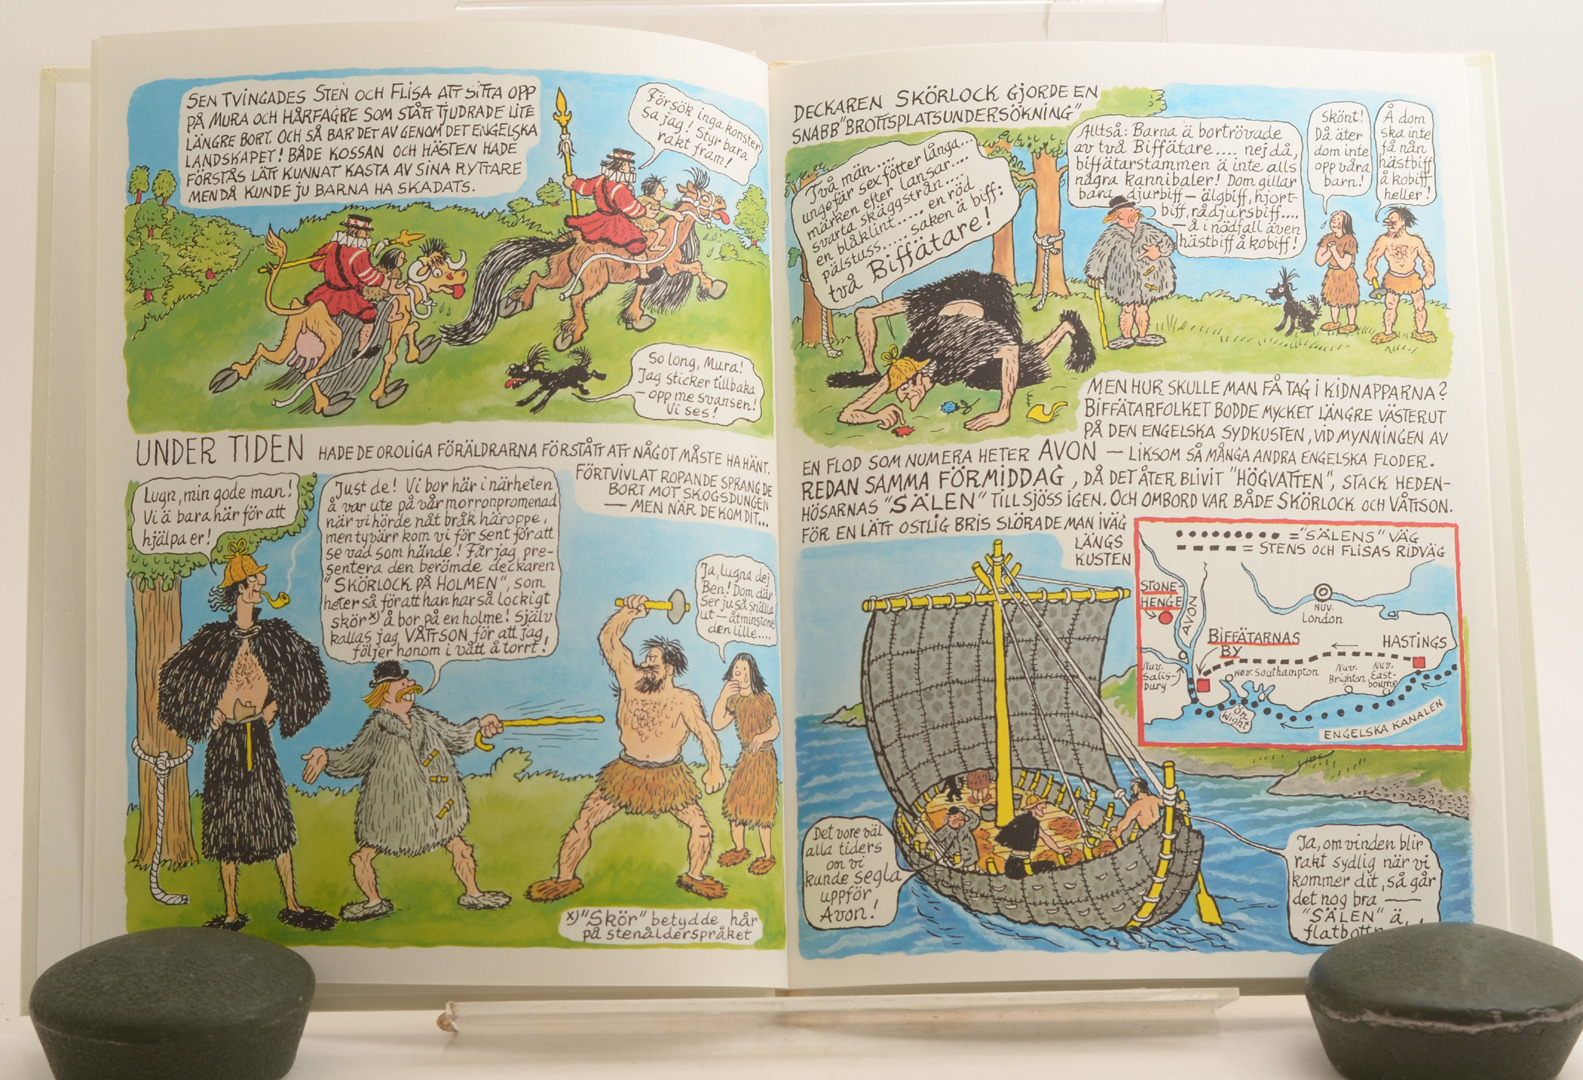 SEN TVINGADES STEN OCH FLISA ATT SITTA OPP
PÅ MURA OCH HÅRFAGRE SOM STÅTT TJUDRADE LITE
LÄNGRE BORT. OCH SÅ BAR DET AV GENOM DET ENGELSKA
LANDSKAPET! BÅDE KOSSAN OCH HÄSTEN HADE
FÖRSTÅS LÄTT KUNNAT KASTA AV SINA RYTTARE
MEN DÅ KUNDE JU BARNA HA SKADATS.
Försök inga konster
sa jag! Styr bara
rakt fram!
So long, Mura!
Jag sticker tillbaka
— opp me svansen!
Vi ses!
UNDER TIDEN HADE DE OROLIGA FÖRÄLDRARNA FÖRSTÅTT ATT NÅGOT MÅSTE HA HÄNT.
FÖRTVIVLAT ROPANDE SPRANG DE
BORT MOT SKOGSDUNGEN
— MEN NÄR DE KOM DIT...
Lugn, min gode man!
Vi ä bara här för att
hjälpa er!
Just de! Vi bor här i närheten
å var ute på vår morronpromenad
när vi hörde nåt bråk häroppe,
men tyvärr kom vi för sent för att
se vad som hände! Får jag pre-
sentera den berömde deckaren
"SKÖRLOCK PÅ HOLMEN", som
heter så för att han har så lockigt
skör x) å bor på en holme! Själv
kallas jag VÅTTSON för att jag
följer honom i vått å torrt!
Ja, lugna dej
Ben! Dom där
ser ju så snälla
ut — åtminstone
den lille....
x) "Skör" betydde hår
på stenåldersspråket
DECKAREN SKÖRLOCK GJORDE EN
SNABB "BROTTSPLATSUNDERSÖKNING"
Två män.....
ungefär sex fötter långa...
märken efter lansar....
svarta skäggstrån....
en blåklint..... en röd
pälstuss.... saken ä biff:
två Biffätare!
Alltså: Barna ä bortrövade
av två Biffätare.... nej då,
biffätarstammen ä inte alls
några kannibaler! Dom gillar
bara djurbiff — älgbiff, hjort-
biff, rådjursbiff....
— å i nödfall även
hästbiff å kobiff!
Skönt!
Då äter
dom inte
opp våra
barn!
Å dom
ska inte
få nån
hästbiff
å kobiff
heller!
MEN HUR SKULLE MAN FÅ TAG I KIDNAPPARNA?
BIFFÄTARFOLKET BODDE MYCKET LÄNGRE VÄSTERUT
PÅ DEN ENGELSKA SYDKUSTEN, VID MYNNINGEN AV
EN FLOD SOM NUMERA HETER AVON — LIKSOM SÅ MÅNGA ANDRA ENGELSKA FLODER.
REDAN SAMMA FÖRMIDDAG, DÅ DET ÅTER BLIVIT "HÖGVATTEN", STACK HEDEN-
HÖSARNAS "SÄLEN" TILL SJÖSS IGEN. OCH OMBORD VAR BÅDE SKÖRLOCK OCH VÅTTSON.
FÖR EN LÄTT OSTLIG BRIS SLÖRADE MAN IVÄG
LÄNGS
KUSTEN
= "SÄLENS" VÄG
= STENS OCH FLISAS RIDVÄG
STONE-
HENGE
AVON
NUV.
London
BIFFÄTARNAS
BY
HASTINGS
Nuv.
Salis-
bury
Nuv. Southampton
Nuv.
Brighton
Nuv.
East-
bourne
Ön
Wight
ENGELSKA KANALEN
Det vore väl
alla tiders
om vi
kunde segla
uppför
Avon!
Ja, om vinden blir
rakt sydlig när vi
kommer dit, så går
det nog bra —
"SÄLEN" ä